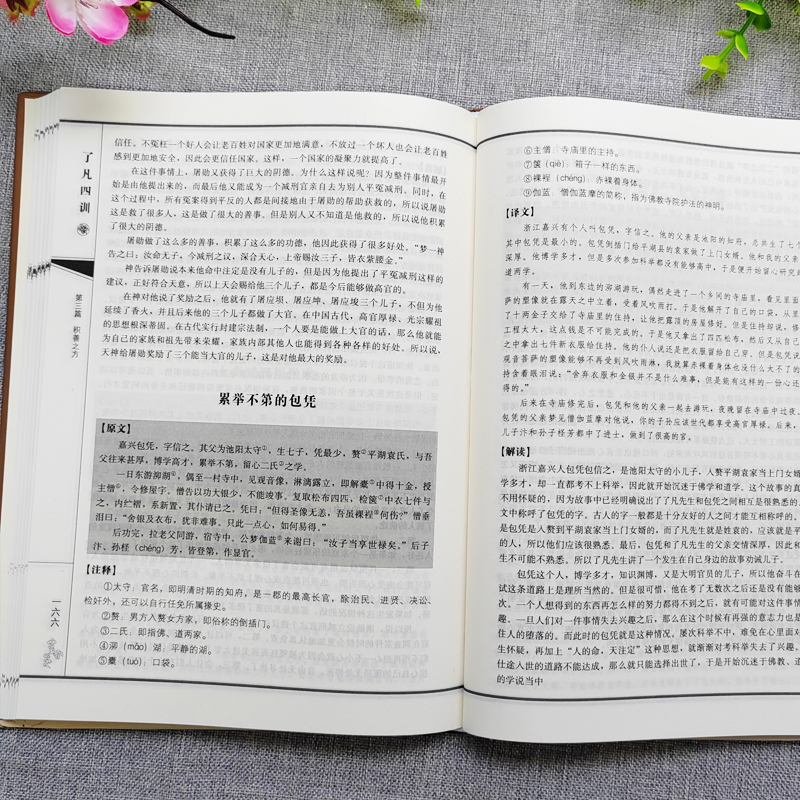 了凡四训
第三篇 积善之方
一六六
信任。不冤枉一个好人会让老百姓对国家更加地满意，不放过一个坏人也会让老百姓
感到更加地安全，因此会更信任国家。这样，一个国家的凝聚力就提高了。
在这件事情上，屠勋又获得了巨大的阴德。为什么这样说呢？因为整件事情最开
始是由他提出来的，而最后他又能成为一个减刑官亲自去为别人平冤减刑。同时，在
这个过程中，所有冤案得到平反的人都是间接地由于屠勋的帮助获救的，所以说屠勋
这是救了很多人，这是做了很大的善事。但是别人又不知道是他救的，所以说他积累
了很大的阴德。
屠勋做了这么多的善事，积累了这么多的功德，他因此获得了很多好处。“梦一神
告之曰：汝命无子，今减刑之议，深合天心，上帝赐汝三子，皆衣紫腰金。”
神告诉屠勋说本来他命中注定是没有儿子的，但是因为他提出了平冤减刑这样的
建议，正好符合天意，所以上天会赐给他三个儿子，都是今后能够做高官的。
在神对他说了奖励之后，他就有了屠应埙、屠应坤、屠应埈三个儿子，不但为他
延续了香火，并且后来他的三个儿子都做了大官。在中国古代，高官厚禄、光宗耀祖
的思想根深蒂固。在古代实行封建宗法制，一个人要是能做上大官的话，那么他就能
为自己的家族和祖先带来荣耀，家族内部其他人也能得到各种各样的好处。所以说，
天神给屠勋奖励了三个能当大官的儿子，这是对他最大的奖励。
累举不第的包凭
【原文】
嘉兴包凭，字信之。其父为池阳太守①，生七子，凭最少，赘②平湖袁氏，与吾
父往来甚厚，博学高才，累举不第，留心二氏③之学。
一日东游泖湖④，偶至一村寺中，见观音像，淋漓露立，即解橐⑤中得十金，授
主僧⑥，令修屋宇。僧告以功大银少，不能竣事。复取松布四匹，检箧⑦中衣七件与
之，内纻褶，系新置，其仆请已之。凭曰：“但得圣像无恙，吾虽裸裎⑧何伤？”僧垂
泪曰：“舍银及衣布，犹非难事。只此一点心，如何易得。”
后功完，拉老父同游，宿寺中。公梦伽蓝⑨来谢曰：“汝子当享世禄矣。”后子
汴、孙柽（chéng）芳，皆登第，作显官。
【注释】
①太守：官名，即明清时期的知府，是一郡的最高长官，除治民、进贤、决讼、
检奸外，还可以自行任免所属掾史。
②赘：男方入赘女方家，即俗称的倒插门。
③二氏：即指佛、道两家。
④泖（mǎo）湖：平静的湖。
⑤橐（tuó）：口袋。
⑥主僧：寺庙里的主持。
⑦箧（qiè）：箱子一样的东西。
⑧裸裎（chéng）：赤裸着身体。
⑨伽蓝：僧伽蓝摩的简称，指为佛教寺院护法的神明。
【译文】
浙江嘉兴有个人叫包凭，字信之。他的父亲是池阳的知府，总共生了七个
其中包凭是最小的。包凭倒插门给平湖县的袁家做了上门女婿，他和我的父亲
深厚。他博学多才，但是多次参加科举都没有能够高中，于是便开始留心研究
道两学。
有一天，他到东边的泖湖游玩，偶然走进了一个乡间的寺庙里，看见里面
萨的塑像就在露天之中立着，受着风吹雨打。于是他解开了自己的口袋，从里
了十两金子交给了寺庙里的住持，让他把露顶的房屋修好。但是住持却说，修
工程太大，这点钱是不可能完成的。于是他又拿出了四匹松布，然后又从自己
之中拿出七件新衣服给住持。他的仆人说还是把衣服留给自己穿。但是包凭说
观音菩萨的塑像能够不再受到风吹雨淋，我就算赤裸着身体也没什么大不了的
持含着眼泪说：“舍弃衣服和金银并不是什么难事，但是能有这样的一份心还
得的。”
后来在寺庙修完后，包凭和他的父亲一起去游玩，夜晚留在寺庙中过夜。
包凭的父亲梦见僧伽蓝摩对他说，你的子孙应该世代都享受高官厚禄。后来，
儿子汴和孙子柽芳都中了进士，做到了很高的官。
【解读】
浙江嘉兴人包凭包信之，是池阳太守的小儿子，入赘平湖袁家当上门女婿
学多才，却一直都考不上科举，因此就开始沉迷于佛学和道学。这个故事的真
不用怀疑的，因为故事中已经明确说出了了凡先生和包凭之间相互是很熟悉的
文中称呼了包凭的字。古人的字一般都是十分友好的人之间才能互相称呼的。
是包凭是入赘到平湖袁家当上门女婿的，而了凡先生就是姓袁的，应该就是平
的人，所以他们应该很熟悉。最后，包凭和了凡先生的父亲交情深厚，因此和
生不可能不熟悉。所以了凡先生讲了一个发生在自己身边的故事劝诫儿子。
包凭这个人，博学多才，知识渊博，又是大明官员的儿子，所以他奋斗在
试这条道路上是理所当然的。但是很可惜，他在考了无数次之后还是没有能够
次。一个人想得到的东西再怎么样的努力都得不到之后，就有可能对这件事情
趣。一旦人们对一件事情失去兴趣之后，那么在这个时候再有强的意志力也是
住人的堕落的。而此时的包凭就是这种情况，屡次科举不中，难免在心里面对
生怀疑，再加上“人的命，天注定”这种思想，就渐渐对考科举失去了兴趣。
仕途人世的道路不能达成，那么就只能选择出世了，于是开始沉迷于佛教、道
的学说当中